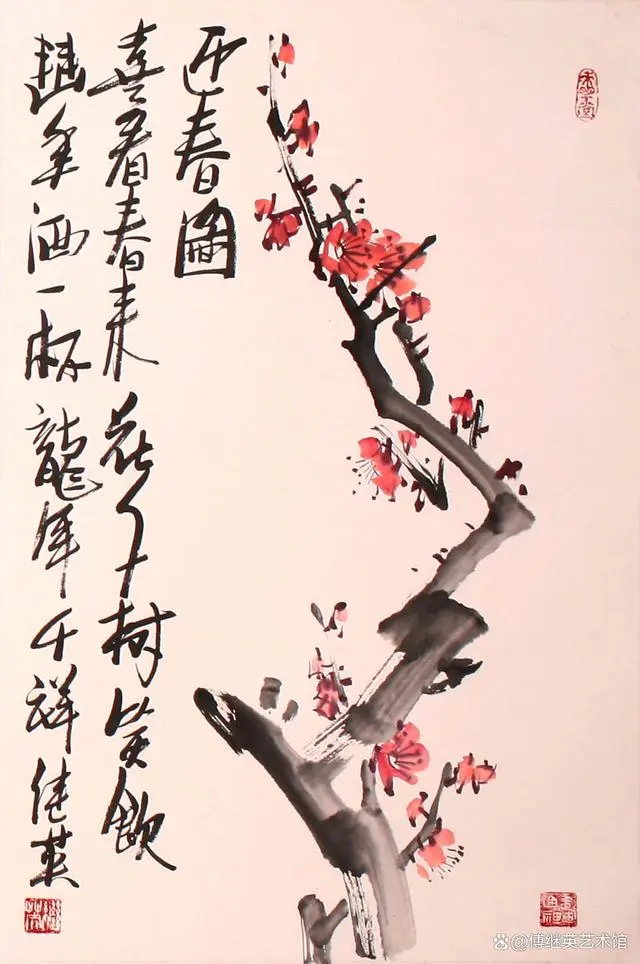 迎春圖
喜看春来花千树笑飲
年酒一杯龍年千祥继英
傅继英艺术馆